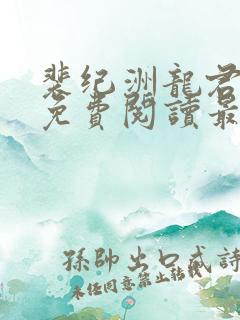 裴纪洲龍君
免費閱讀最
孫帥出口成詩
未经同意禁止转载